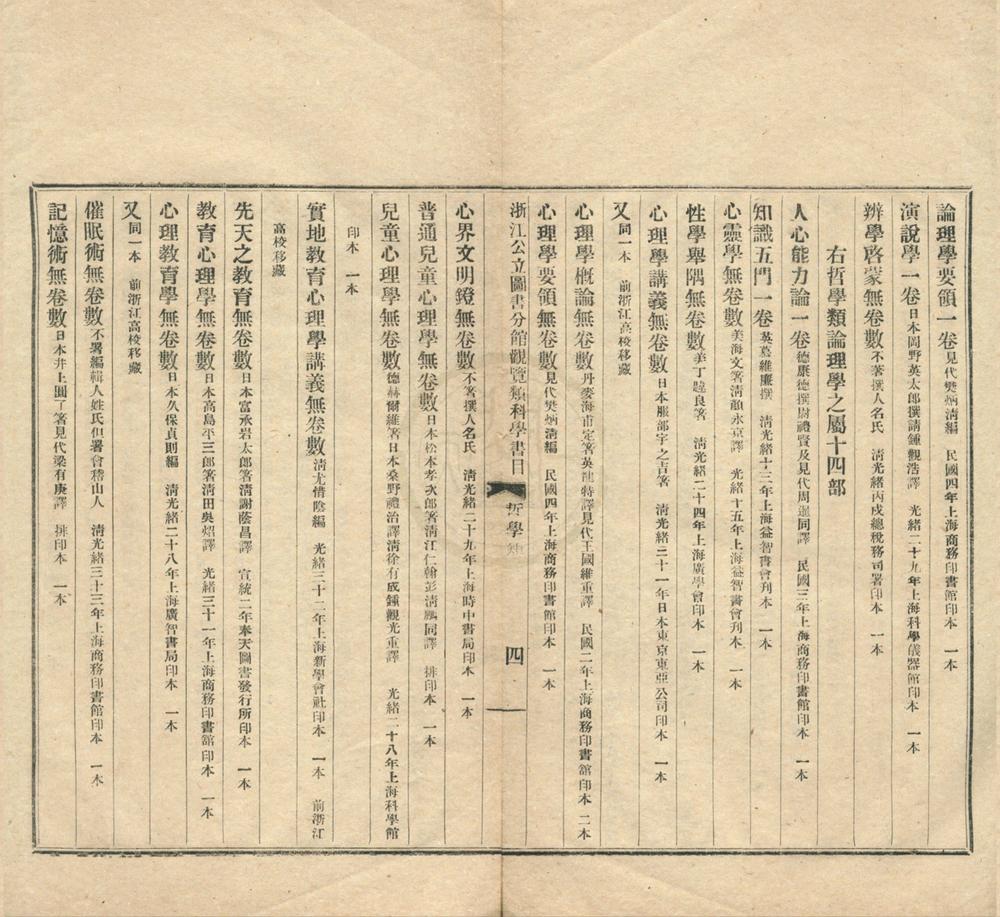 論理學要領一卷見代樊炳清編 民國四年上海商務印書館印本 一本
演說學一卷日本岡野英太郎撰請鍾觀浩譯 光緒二十九年上海科學儀器館印本 一本
辨學啓蒙無卷數不著撰人名氏 清光緒丙戌總稅務司署印本 一本
右哲學類論理學之屬十四部
人心能力論一卷德康德撰尉禮賢及見代周暹同譯 民國三年上海商務印書館印本 一本
知識五門一卷英慕維廉撰 清光緒十三年上海益智書會刊本 一本
心靈學無卷數美海文箸淸顏永京譯 光緒十五年上海益智書會刊本 一本
性學舉隅無卷數美丁韙良箸 清光緒二十四年上海廣學會印本 一本
心理學講義無卷數日本服部宇之吉箸 清光緒三十一年日本東京東亞公司印本 一本
又同一本 前浙江高校移藏
心理學概論無卷數丹麥海甫定箸英龍特譯見代王國維重譯 民國二年上海商務印書館印本 二本
心理學要領無卷數見代樊炳淸編 民國四年上海商務印書館印本 一本
浙江公立圖書分館觀覽類科學書目 哲學 四
心界文明鐙無卷數不箸撰人名氏 清光緒二十九年上海時中書局印本 一本
普通兒童心理學無卷數日本松本孝次郎箸淸江仁翰彭淸鵬同譯 排印本 一本
兒童心理學無卷數德赫爾維箸日本桑野禮治譯淸徐有成鍾觀光重譯 光緒二十八年上海科學館
印本 一本
實地教育心理學講義無卷數淸尤惜陰編 光緒三十二年上海新學會社印本 一本 前浙江
高校移藏
先天之敎育無卷數日本富永岩太郎箸淸謝蔭昌譯 宣統二年奉天圖書發行所印本 一本
敎育心理學無卷數日本高島平三郎箸淸田吳炤譯 光緒三十一年上海商務印書館印本 一本
心理敎育學無卷數日本久保貞則編 清光緒二十八年上海廣智書局印本 一本
又同一本 前浙江高校移藏
催眠術無卷數不署編輯人姓氏但署會稽山人 清光緒三十三年上海商務印書館印本 一本
記憶術無卷數日本井上圓了箸見代梁有庚譯 排印本 一本